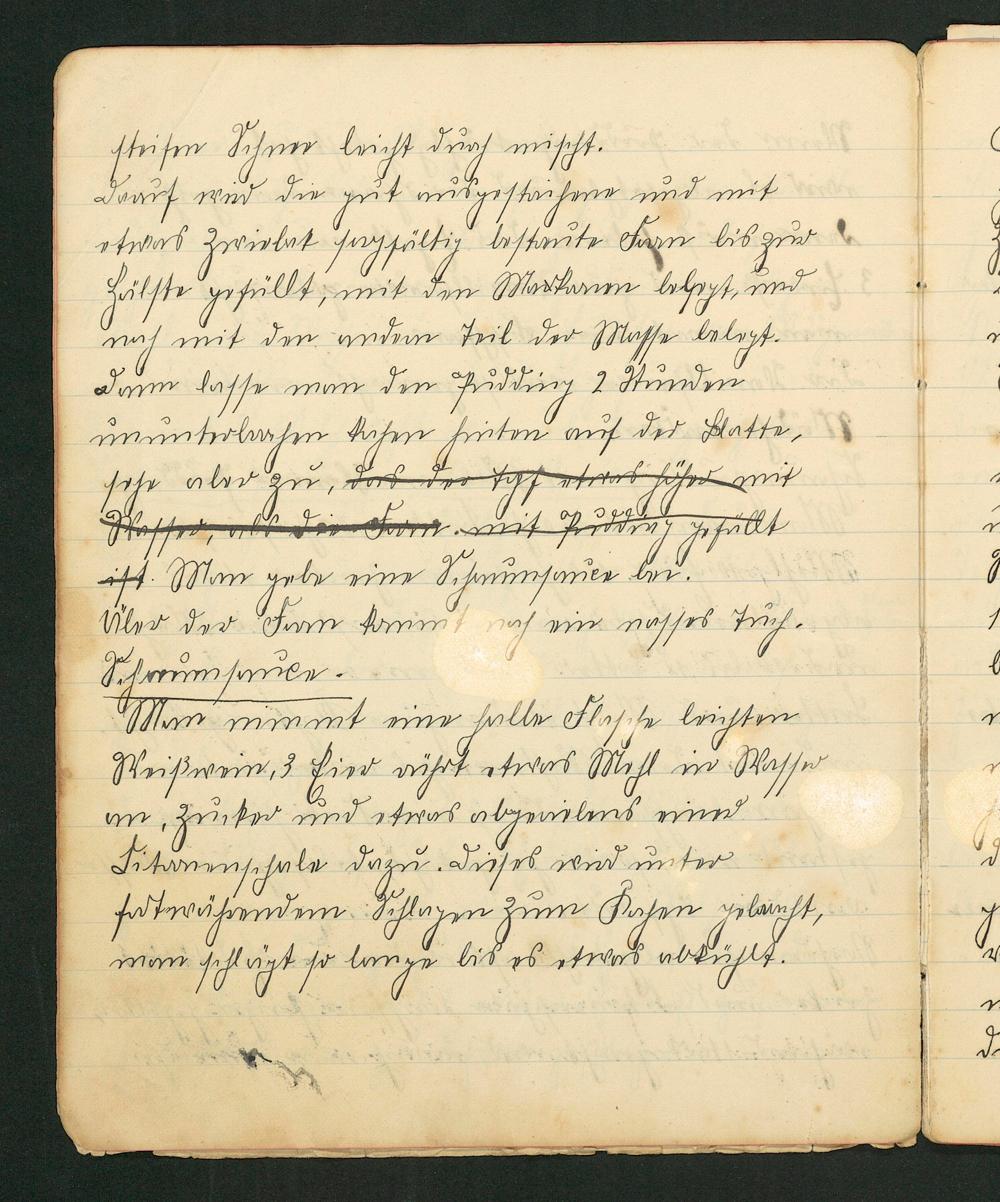 steifen Schnee leicht durch mischt.
Darauf wird die gut ausgestrichene und mit
etwas Zwiebak sorgfältig bestreute Form bis zur
Hälfte gefüllt, mit den Makronen belegt, und
noch mit den andern Teil der Masse belegt.
Dann lasse man den Pudding 2 Stunden
ununterbrochen kochen hinten auf der Platte,
sehe aber zu, das der Topf etwas höher mit
Wasser, als die Form. mit Pudding gefüllt
ist. Man gebe eine Schaumsauce bei.
Über der Form kommt noch ein nasses Tuch.
Schaumsauce.
Man nimmt eine halbe Flasche leichten
Weißwein, 3 Eier rührt etwas Mehl in Wasser
an, Zucker und etwas abgeriebens einer
Zitronenschale dazu. Dieses wird unter
fortwährendem Schlagen zum Kochen gebracht,
man schlägt so lange bis es etwas abkühlt.